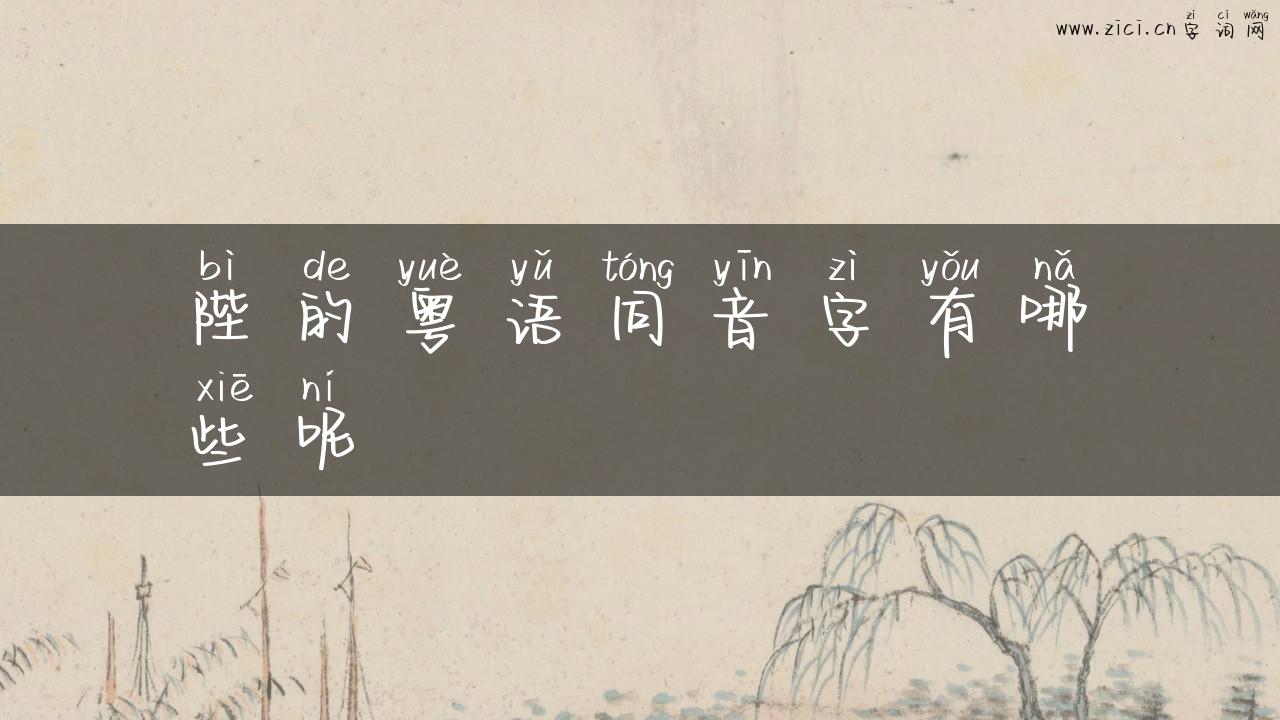 zì cí wǎng
www.zici.cn 字词网
bì de yuè yǔ tóng yīn zì yǒu nǎ
陛的粤语同音字有哪
xiē ní
些呢